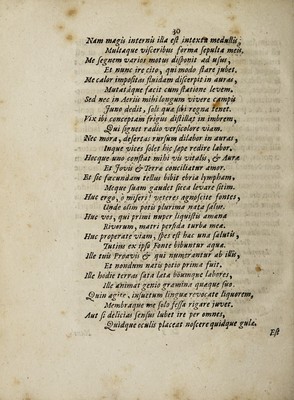 30
Nam magis internis illa est intexta medullis;
Multaque visceribus forma sepulta meis.
Me segnem varios motus disponit ad usus,
Et nunc ire cito, qui modo stare jubet,
Me calor impositas fluidam discerpit in auras,
Mutatáque facit cum statione levem.
Sed nec in Aeriis mihi longum vivere campis
Juno dedit, soli quæ sibi regna tenet.
Vix ibi conceptam frigus distillat in imbrem,
Qui signet radio versicolore viam.
Nec mora, desertas rursum dilabor in auras,
Inque vices solet hic sæpe redire labor.
Hocque uno constat mihi vis vitalis, & Auræ
Et Jovis & Terra conciliatur amor.
Et sic fœcundam tellus bibit ebria lympham,
Meque suam gaudet sicca levare sitim.
Huc ergo, ô miseri! veteres agnoscite fontes,
Unde olim potis plurima nata salus.
Huc vos, qui primi nuper liquistis amœna
Rivorum, matri perfida turba meæ.
Huc properate viam, spes est hæc una salutis,
Tutius ex ipso Fonte bibuntur aquæ.
Ille tuis Proavis & qui numerantur ab illis,
Et nondum natis potio prima fuit.
Ille hodie terras sata læta bôumque labores,
Ille animat genio gramina quæque suo.
Quin agite, insuetum linguæ revocate liquorem,
Membraque me solo fessa rigare juvet.
Aut si delicias sensus lubet ire per omnes,
Quidque oculis placeat noscere quidque gulæ.
Est